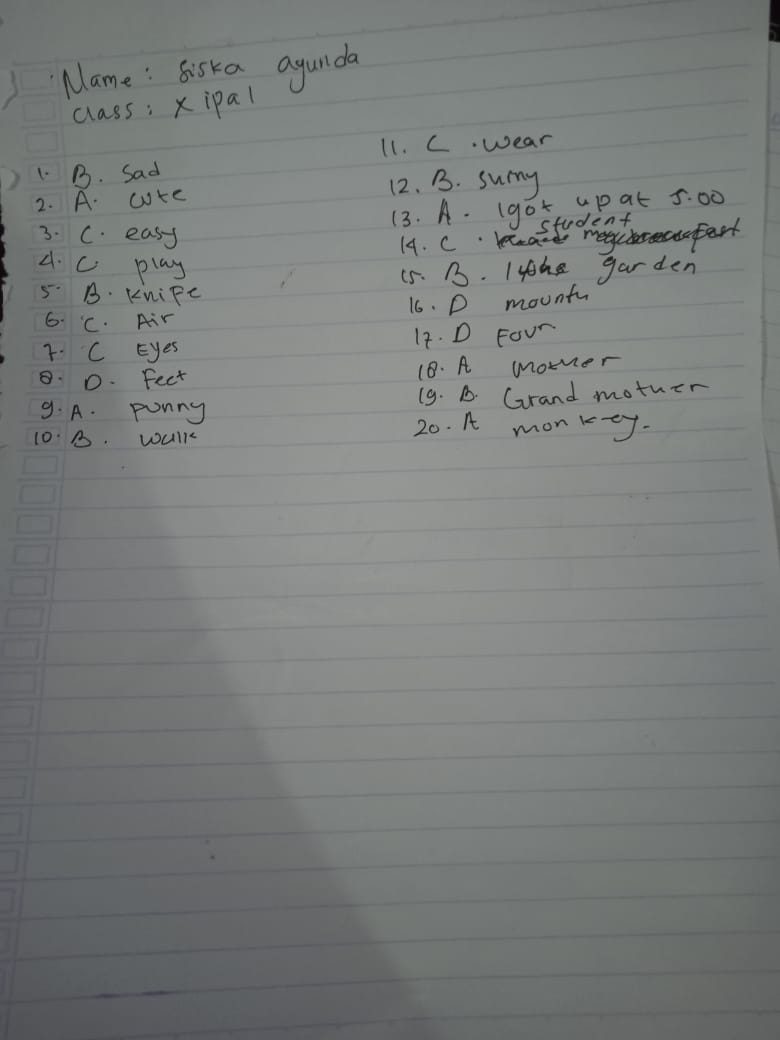 Name: Siska ayunda
class: X ipal
1. B. Sad
2. A. cute
3. C. easy
4. C play
5. B. knife
6. C. Air
7. C Eyes
8. D. Feet
9. A. punny
10. B. walk
11. C. wear
12. B. sunny
13. A. I got up at 5.00
14. C. student
15. B. garden
16. D mounth
17. D Four
18. A Mother
19. B. Grand mother
20. A monkey.